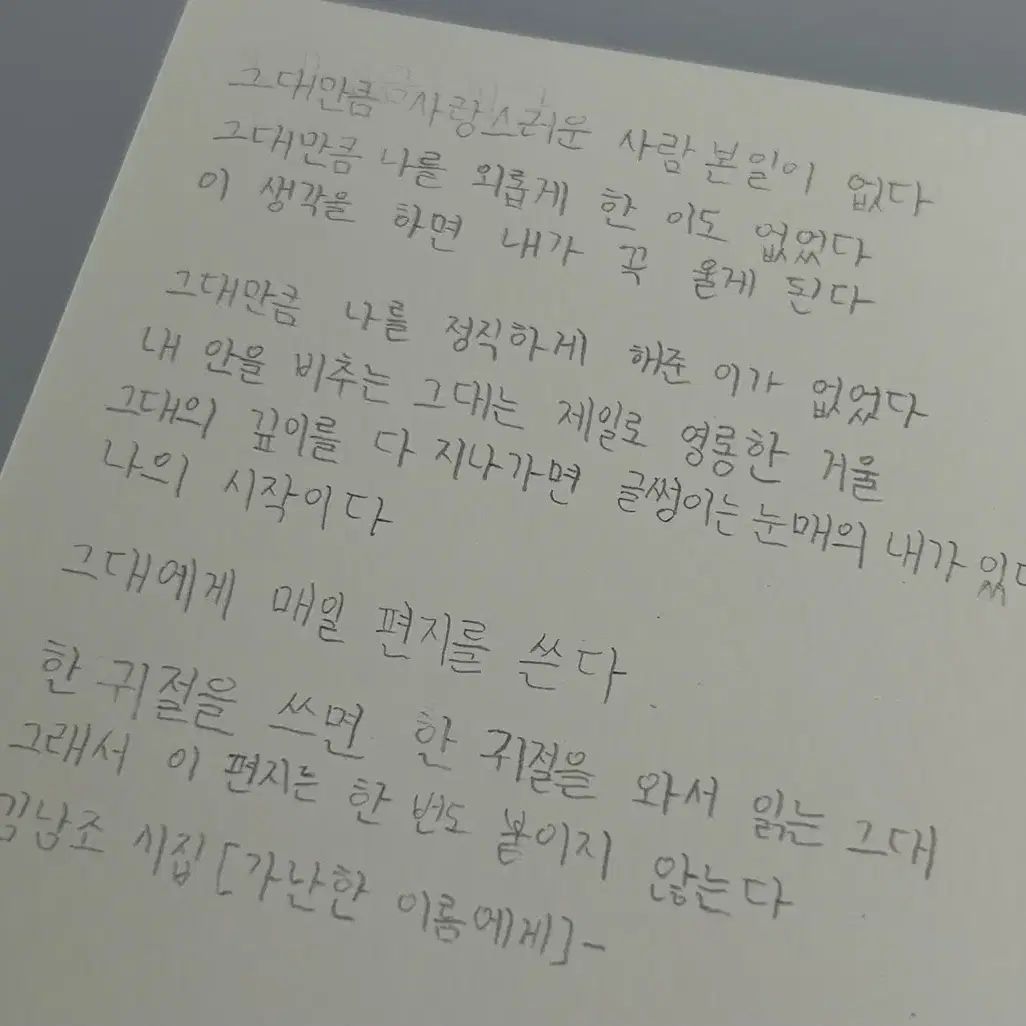 그대만큼 사랑스러운 사람 본일이 없다
그대만큼 나를 외롭게 한 이도 없었다
이 생각을 하면 내가 꼭 울게 된다
그대만큼 나를 정직하게 해준 이가 없었다
내 안을 비추는 그대는 제일로 영롱한 거울
그대의 깊이를 다 지나가면 글썽이는 눈매의 내가 있다
나의 시작이다
그대에게 매일 편지를 쓴다
한 귀절을 쓰면 한 귀절을 와서 읽는 그대
그래서 이 편지는 한 번도 붙이지 않는다
김남조 시집 [가난한 이름에게]-